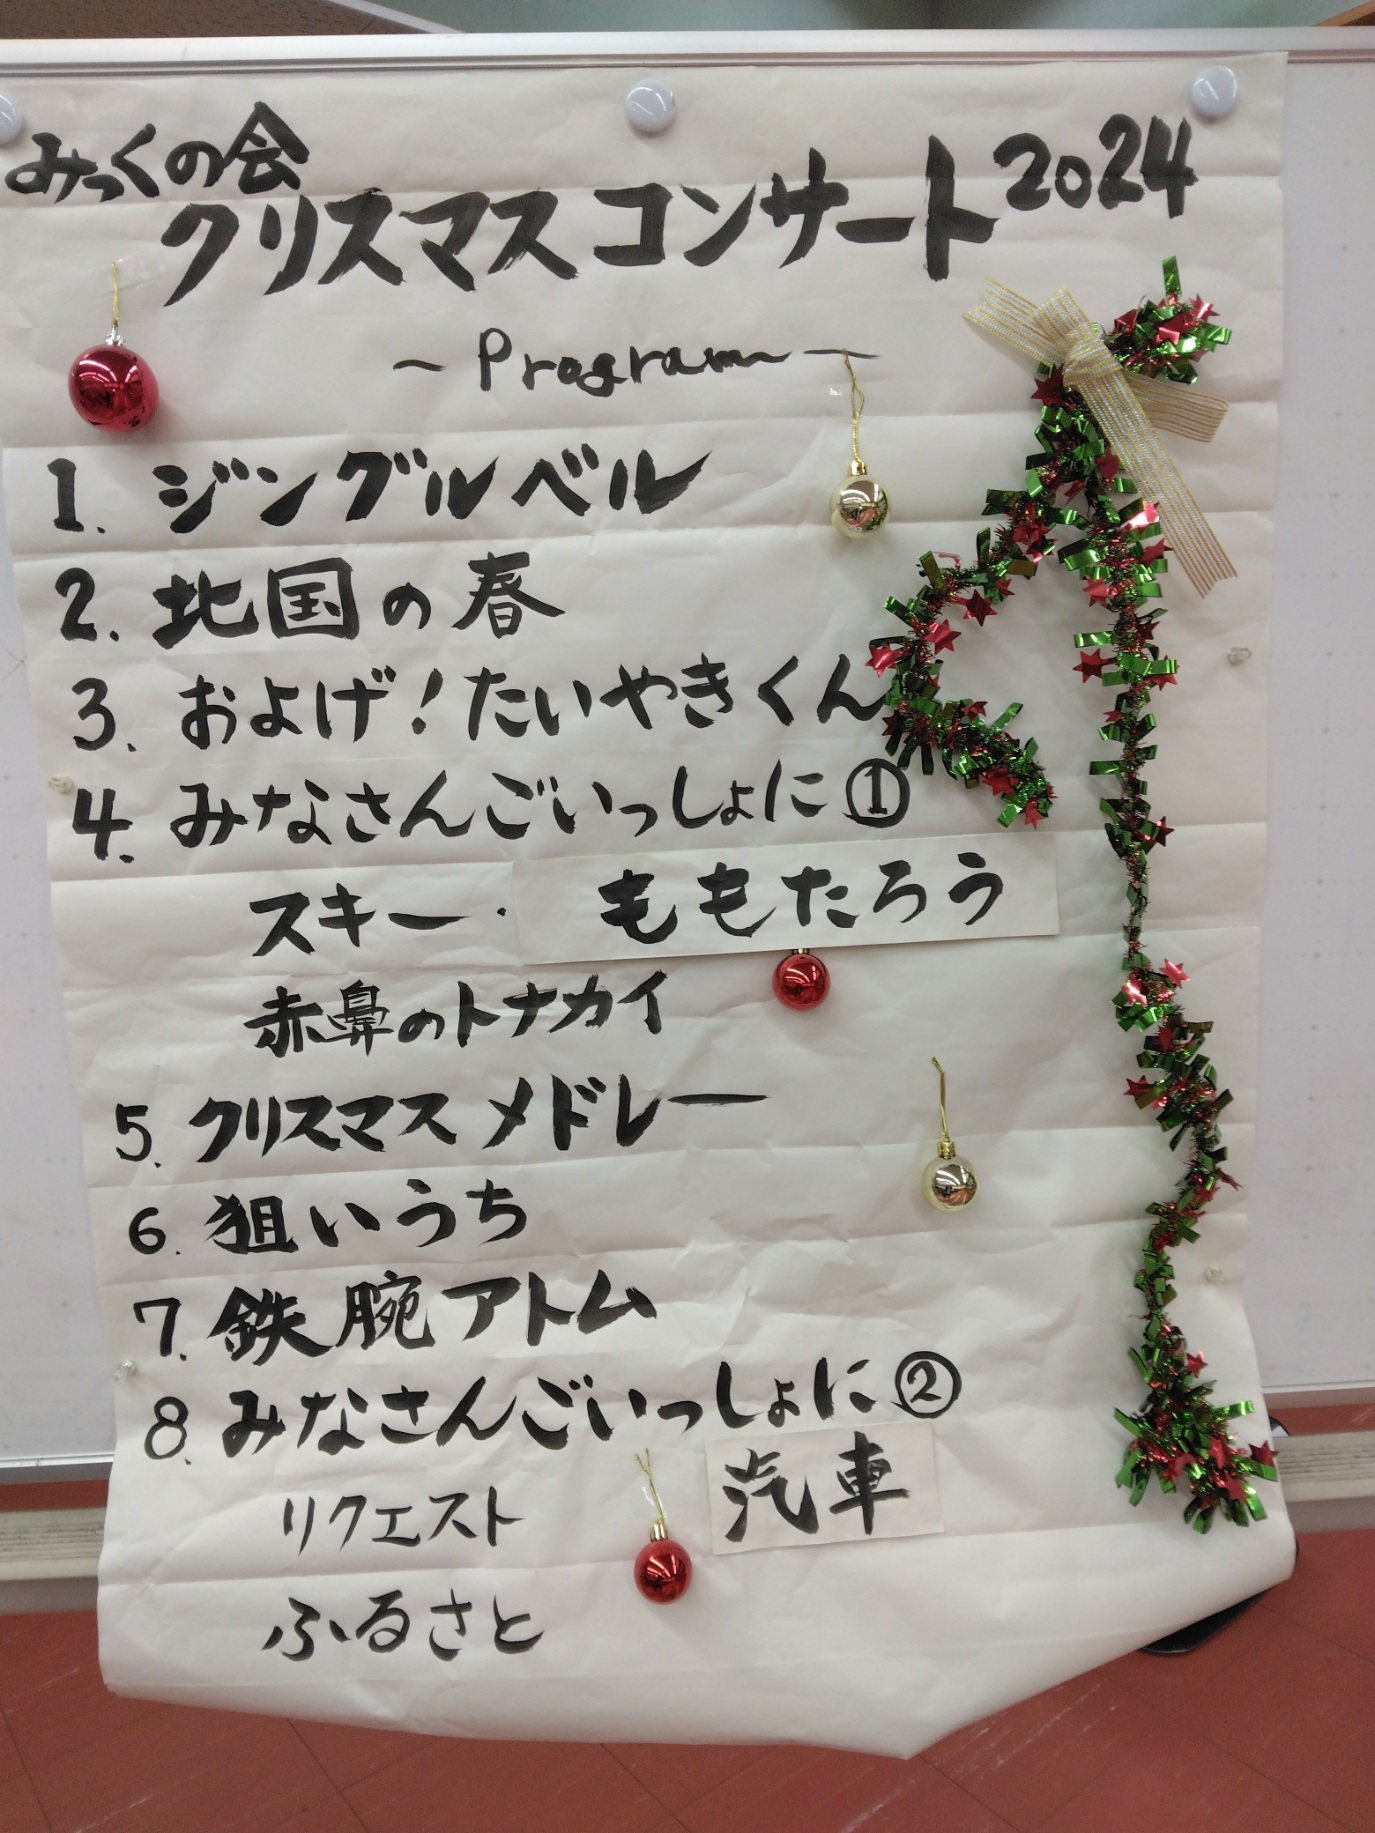 みっくの会
クリスマスコンサート2024
～Program～
1. ジングルベル
2. 北国の春
3. およげ！たいやきくん
4. みなさんごいっしょに①
スキー・ももたろう
赤鼻のトナカイ
5. クリスマスメドレー
6. 狙いうち
7. 鉄腕アトム
8. みなさんごいっしょに②
リクエスト 汽車
ふるさと